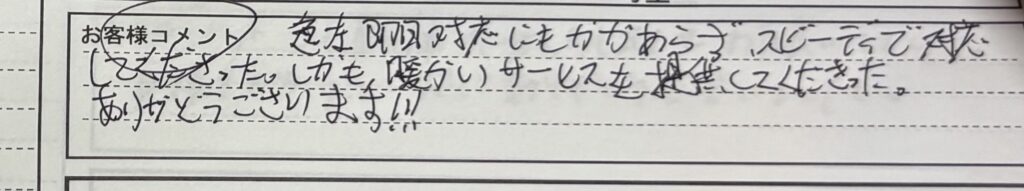 お客様コメント 急な夜間対応にもかかわらず、スピーディで対応
してくださった。しかも、暖かいサービスを提供してくださった。
ありがとうございます!!!